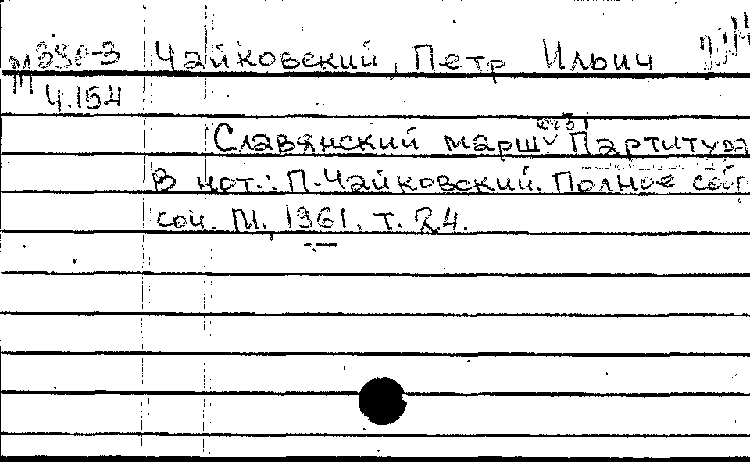 М390-3 Чайковский, Петр Ильич
Ч.154
Славянский марш Партитура
В нот.: П. Чайковский. Полное собр
соч. М., 1961, т. 24.